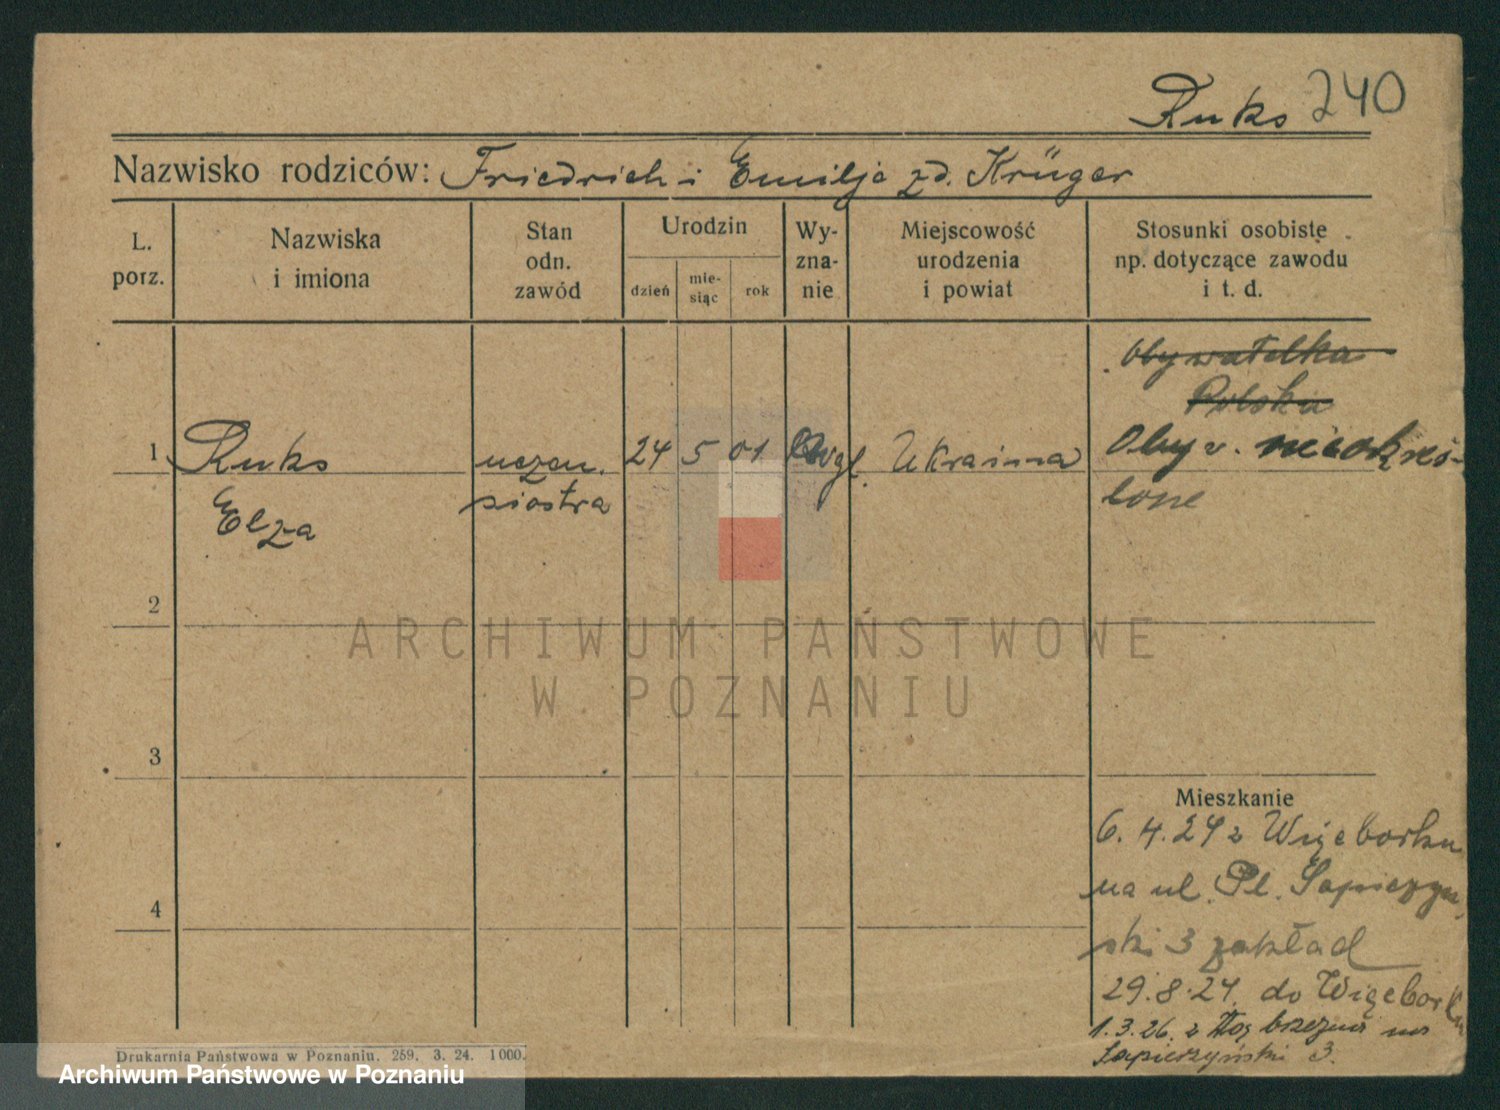 Ruks 240
Nazwisko rodziców: Friedrich i Emilja zd. Krüger
L. porz.
Nazwiska i imiona
Stan odn. zawód
Urodzin
dzień
mie-siąc
rok
Wy-zna-nie
Miejscowość urodzenia i powiat
Stosunki osobiste np. dotyczące zawodu i t. d.
Obywatelka
Polska
1 Ruks uczen. 24 5 01 Ewgl. Ukraina Obyw. nieokreś-
Elza siostra lone
2
3
4
Mieszkanie
6. 4. 24 z Więcborku
na ul. Pl. Sapieżyń
ski 3 zakład
29. 8. 24. do Więcbork
1. 3. 26. z na
Sapieżyński 3.
Drukarnia Państwowa w Poznaniu. 259. 3. 24. 1000.
ARCHIWUM PAŃSTWOWE
W POZNANIU
Archiwum Państwowe w Poznaniu